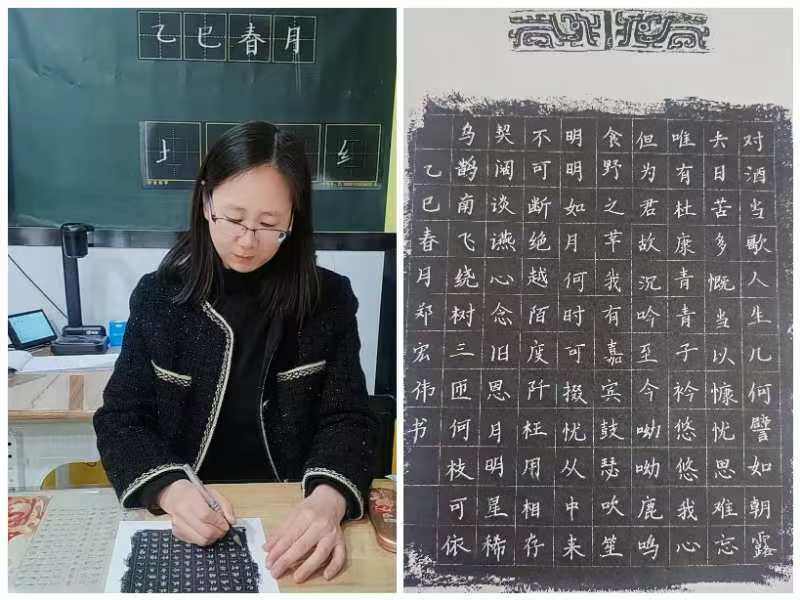 乙巳春月
对酒当歌人生几何譬如朝露
去日苦多慨当以慷忧思难忘
唯有杜康青青子衿悠悠我心
但为君故沉吟至今呦呦鹿鸣
食野之苹我有嘉宾鼓瑟吹笙
明明如月何时可掇忧从中来
不可断绝越陌度阡枉用相存
契阔谈䜩心念旧恩月明星稀
乌鹊南飞绕树三匝何枝可依
乙巳春月郑宏伟书